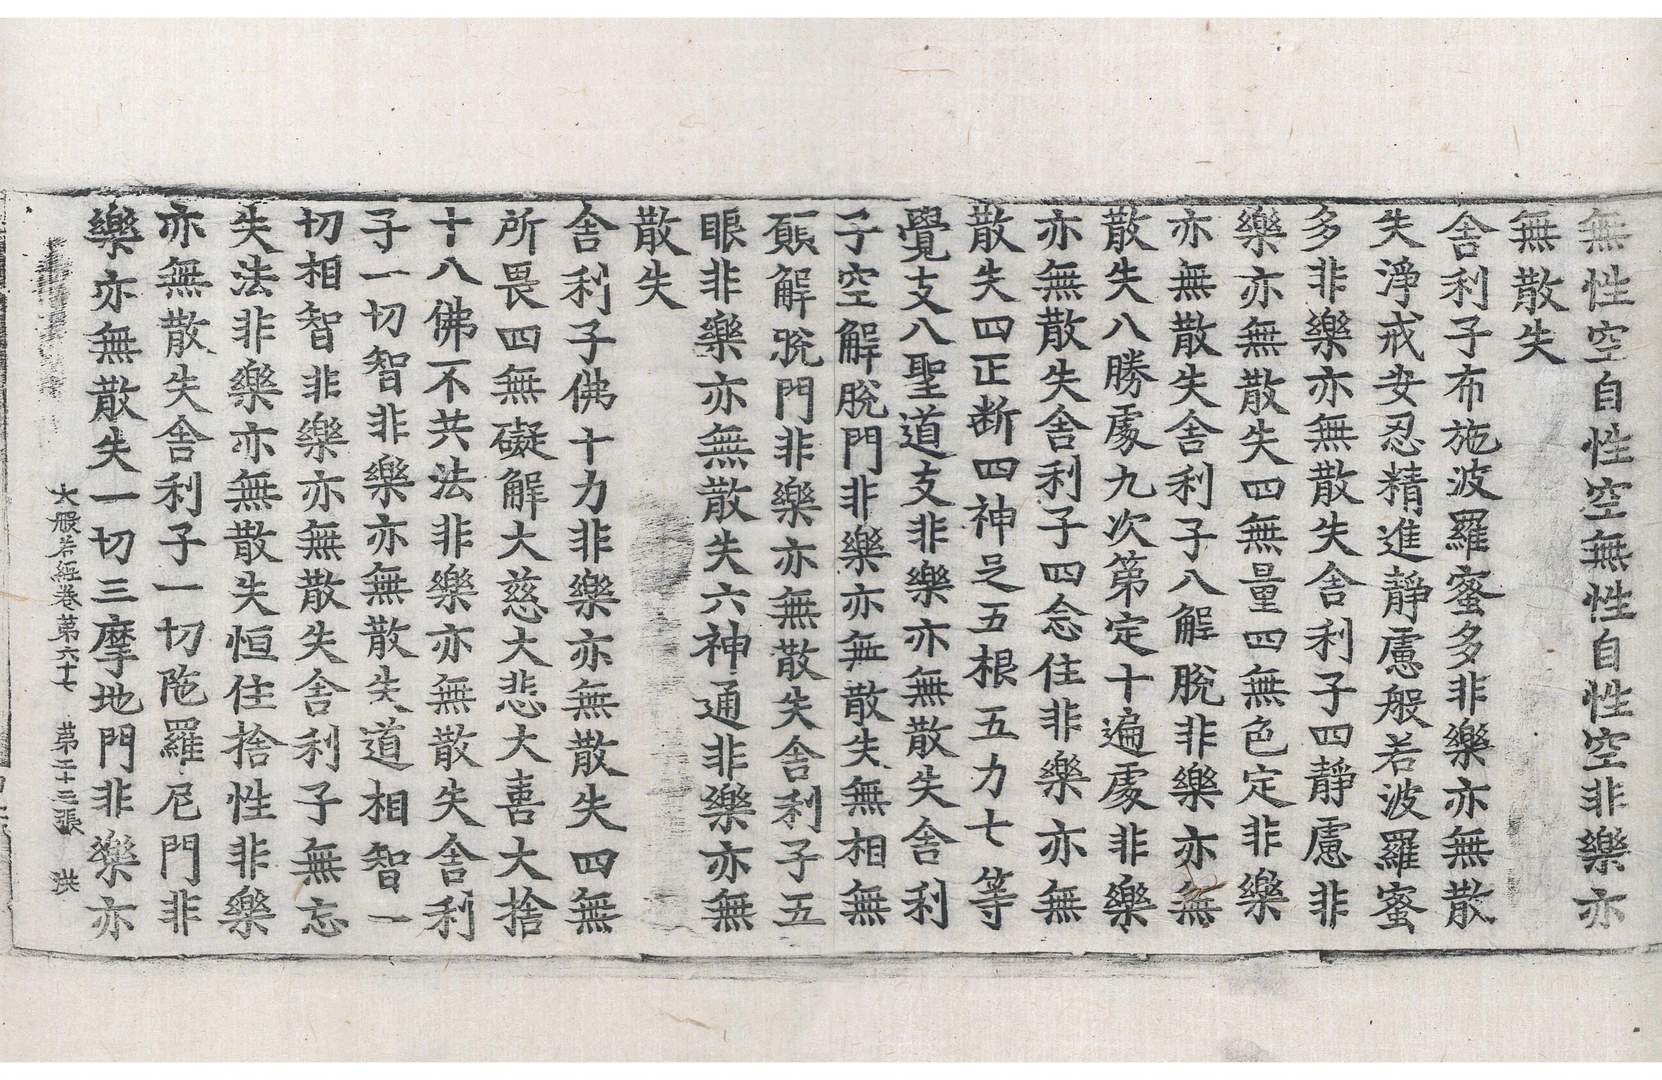 無性空自性空無性自性空非樂亦
無散失
舎利子布施波羅蜜多非樂亦無散
失淨戒安忍精進靜慮般若波羅蜜
多非樂亦無散失舎利子四靜慮非
樂亦無散失四無量四無色定非樂
亦無散失舎利子八解脫非樂亦無
散失八勝處九次第定十遍處非樂
亦無散失舎利子四念住非樂亦無
散失四正断四神足五根五力七等
覺支八聖道支非樂亦無散失舎利
子空解脫門非樂亦無散失無相無
願解脫門非樂亦無散失舎利子五
眼非樂亦無散失六神通非樂亦無
散失
舎利子佛十力非樂亦無散失四無
所畏四無礙解大慈大悲大喜大捨
十八佛不共法非樂亦無散失舎利
子一切智非樂亦無散失道相智一
切相智非樂亦無散失舎利子無忘
失法非樂亦無散失恒住捨性非樂
亦無散失舎利子一切陁羅尼門非
樂亦無散失一切三摩地門非樂亦
大般若經卷第六十七 第二十二張 洪